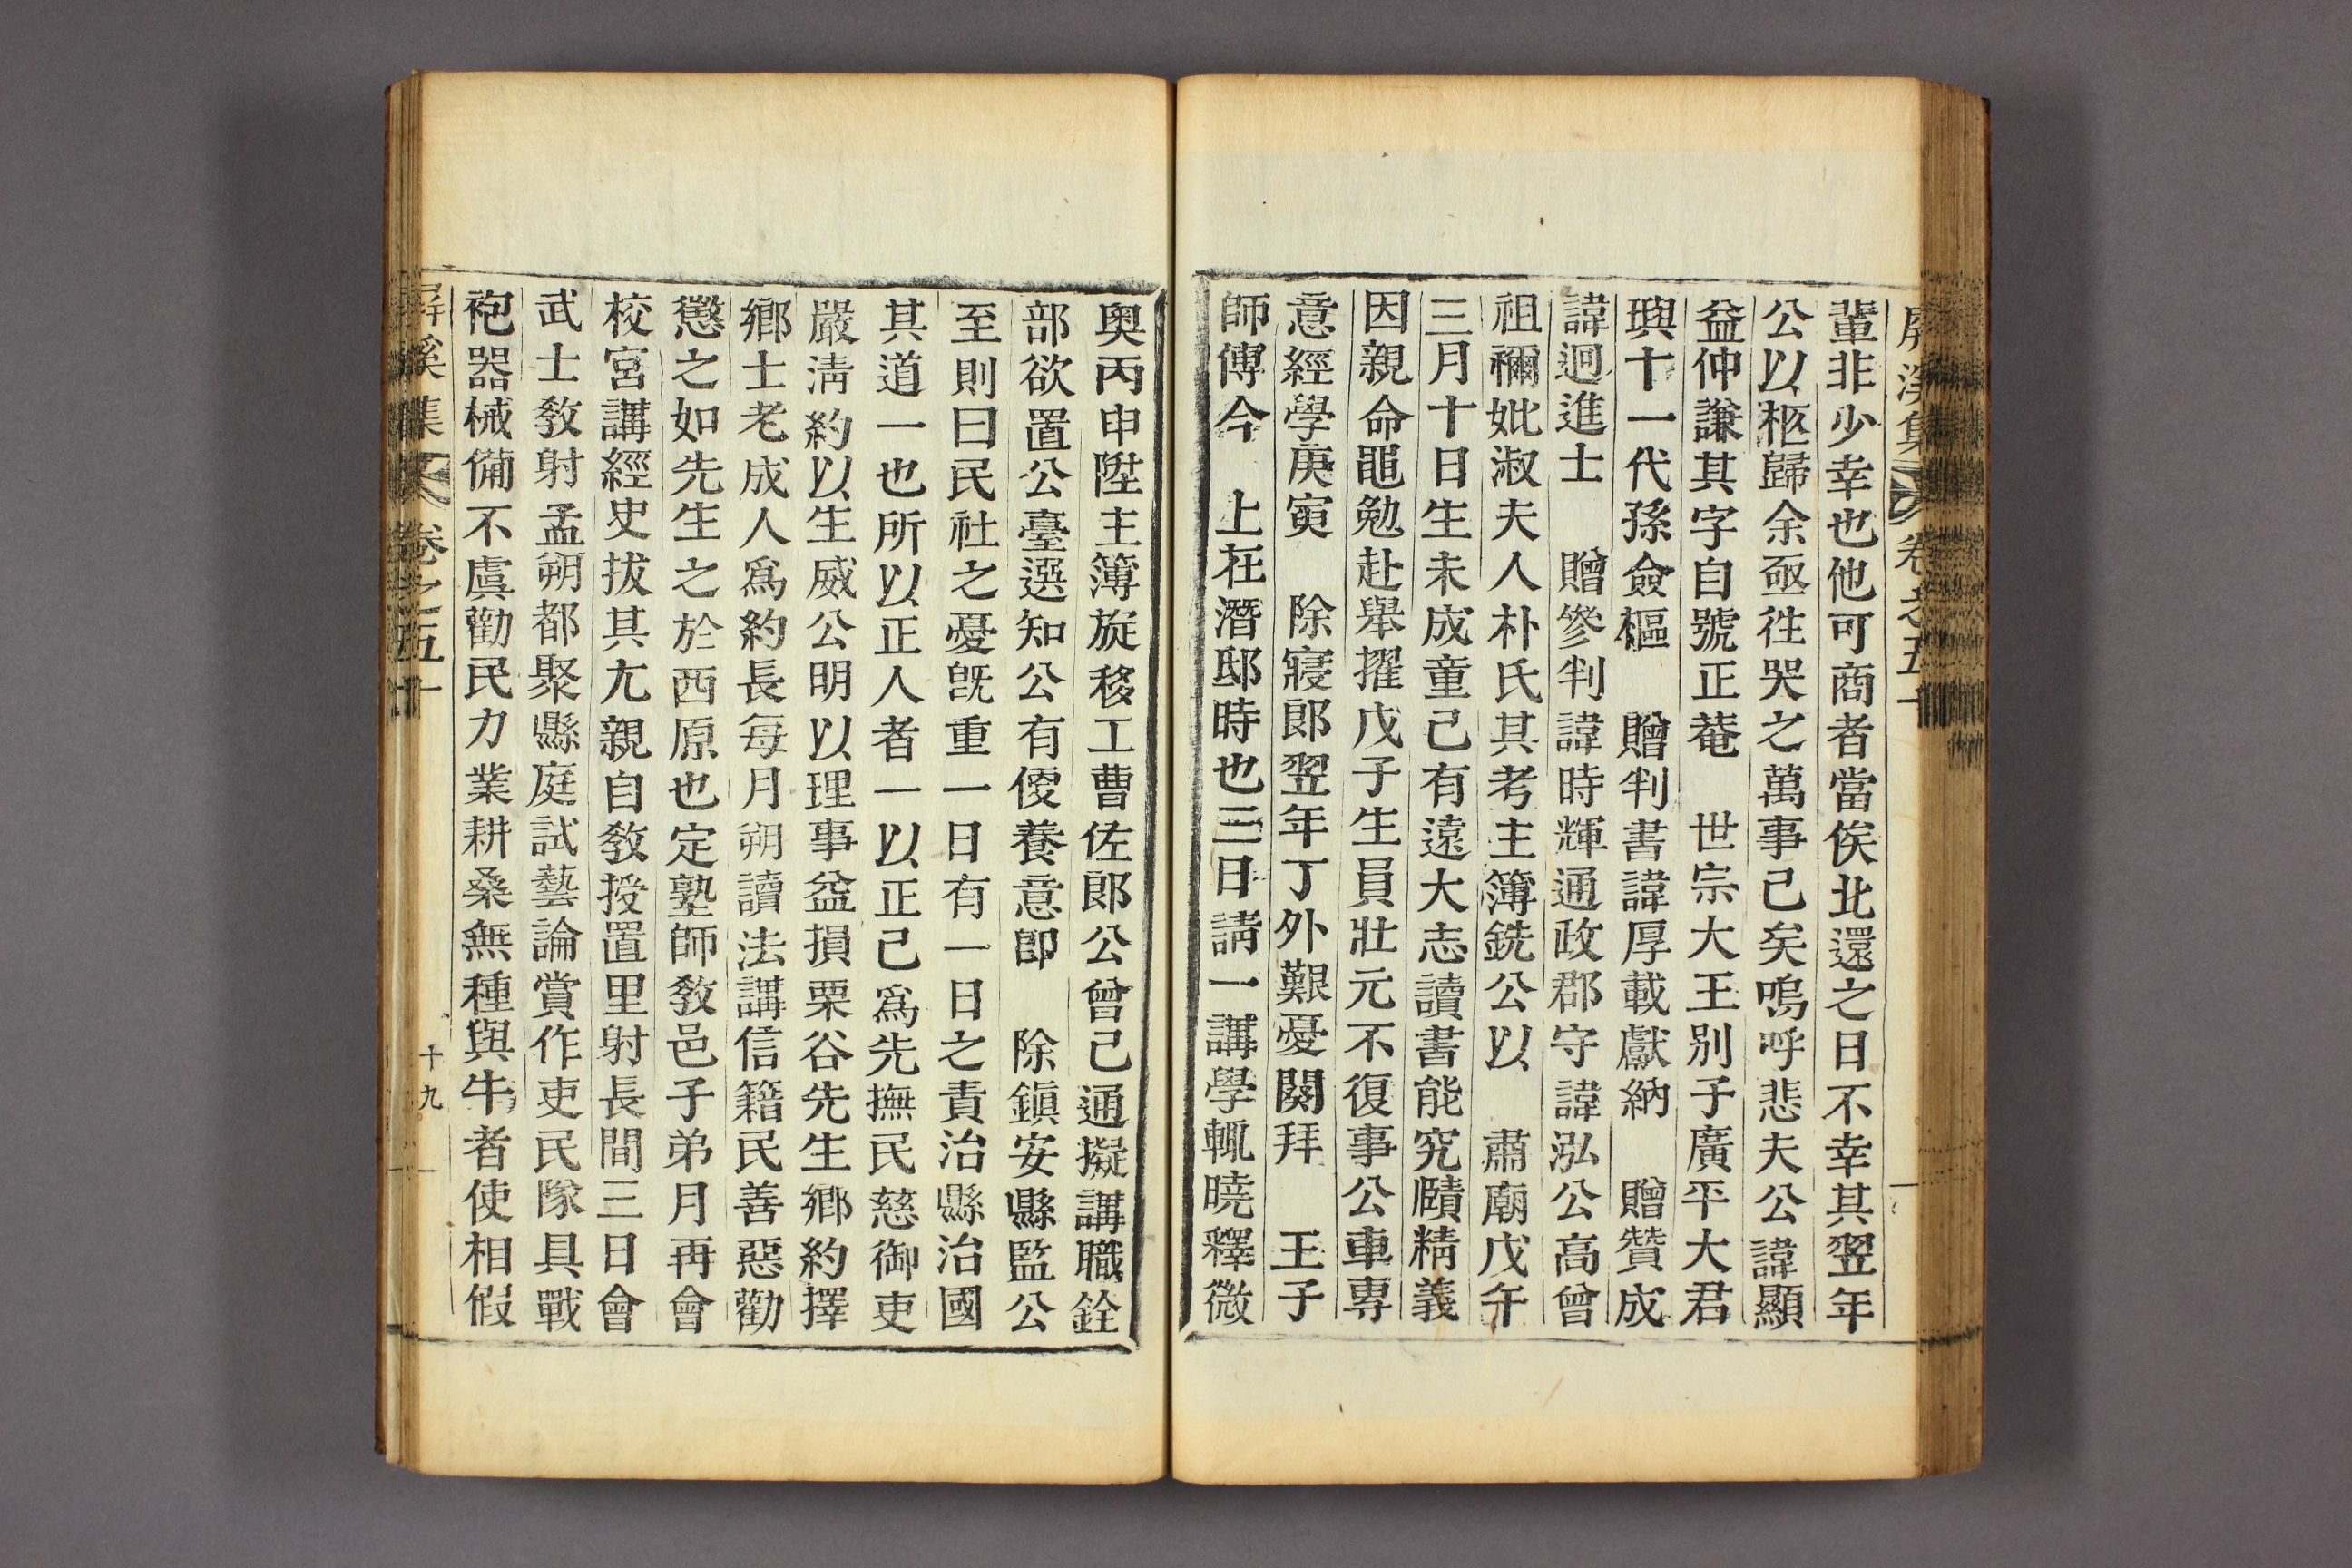 屛溪集 卷之五十
輩非少幸也他可商者當俟北還之日不幸其翌年
公以柩歸余亟徃哭之萬事已矣嗚呼悲夫公諱顯
益仲謙其字自號正菴 世宗大王別子廣平大君
璵十一代孫僉樞 贈判書諱厚載獻納 贈贊成
諱逈進士 贈參判諱時輝通政郡守諱泓公高曾
祖禰妣淑夫人朴氏其考主簿銑公以 肅廟戊午
三月十日生未成童已有遠大志讀書能究賾精義
因親命黽勉赴擧擢戊子生員壯元不復事公車專
意經學庚寅 除寢郞翌年丁外艱憂闋拜 王子
師傅今 上在潛邸時也三日請一講學輒曉釋微
奧丙申陞主簿旋移工曹佐郞公曾已通擬講職銓
部欲置公臺選知公有便養意卽 除鎭安縣監公
至則曰民社之憂旣重一日有一日之責治縣治國
其道一也所以正人者一以正己爲先撫民慈御吏
嚴淸約以生威公明以理事益損栗谷先生鄕約擇
鄕士老成人爲約長每月朔讀法講信籍民善惡勸
懲之如先生之於西原也定塾師敎邑子弟月再會
校宮講經史拔其尤親自敎授置里射長間三日會
武士敎射孟朔都聚縣庭試藝論賞作吏民隊具戰
袍器械備不虞勸民力業耕桑無種與牛者使相假
屛溪集 卷之五十 十九